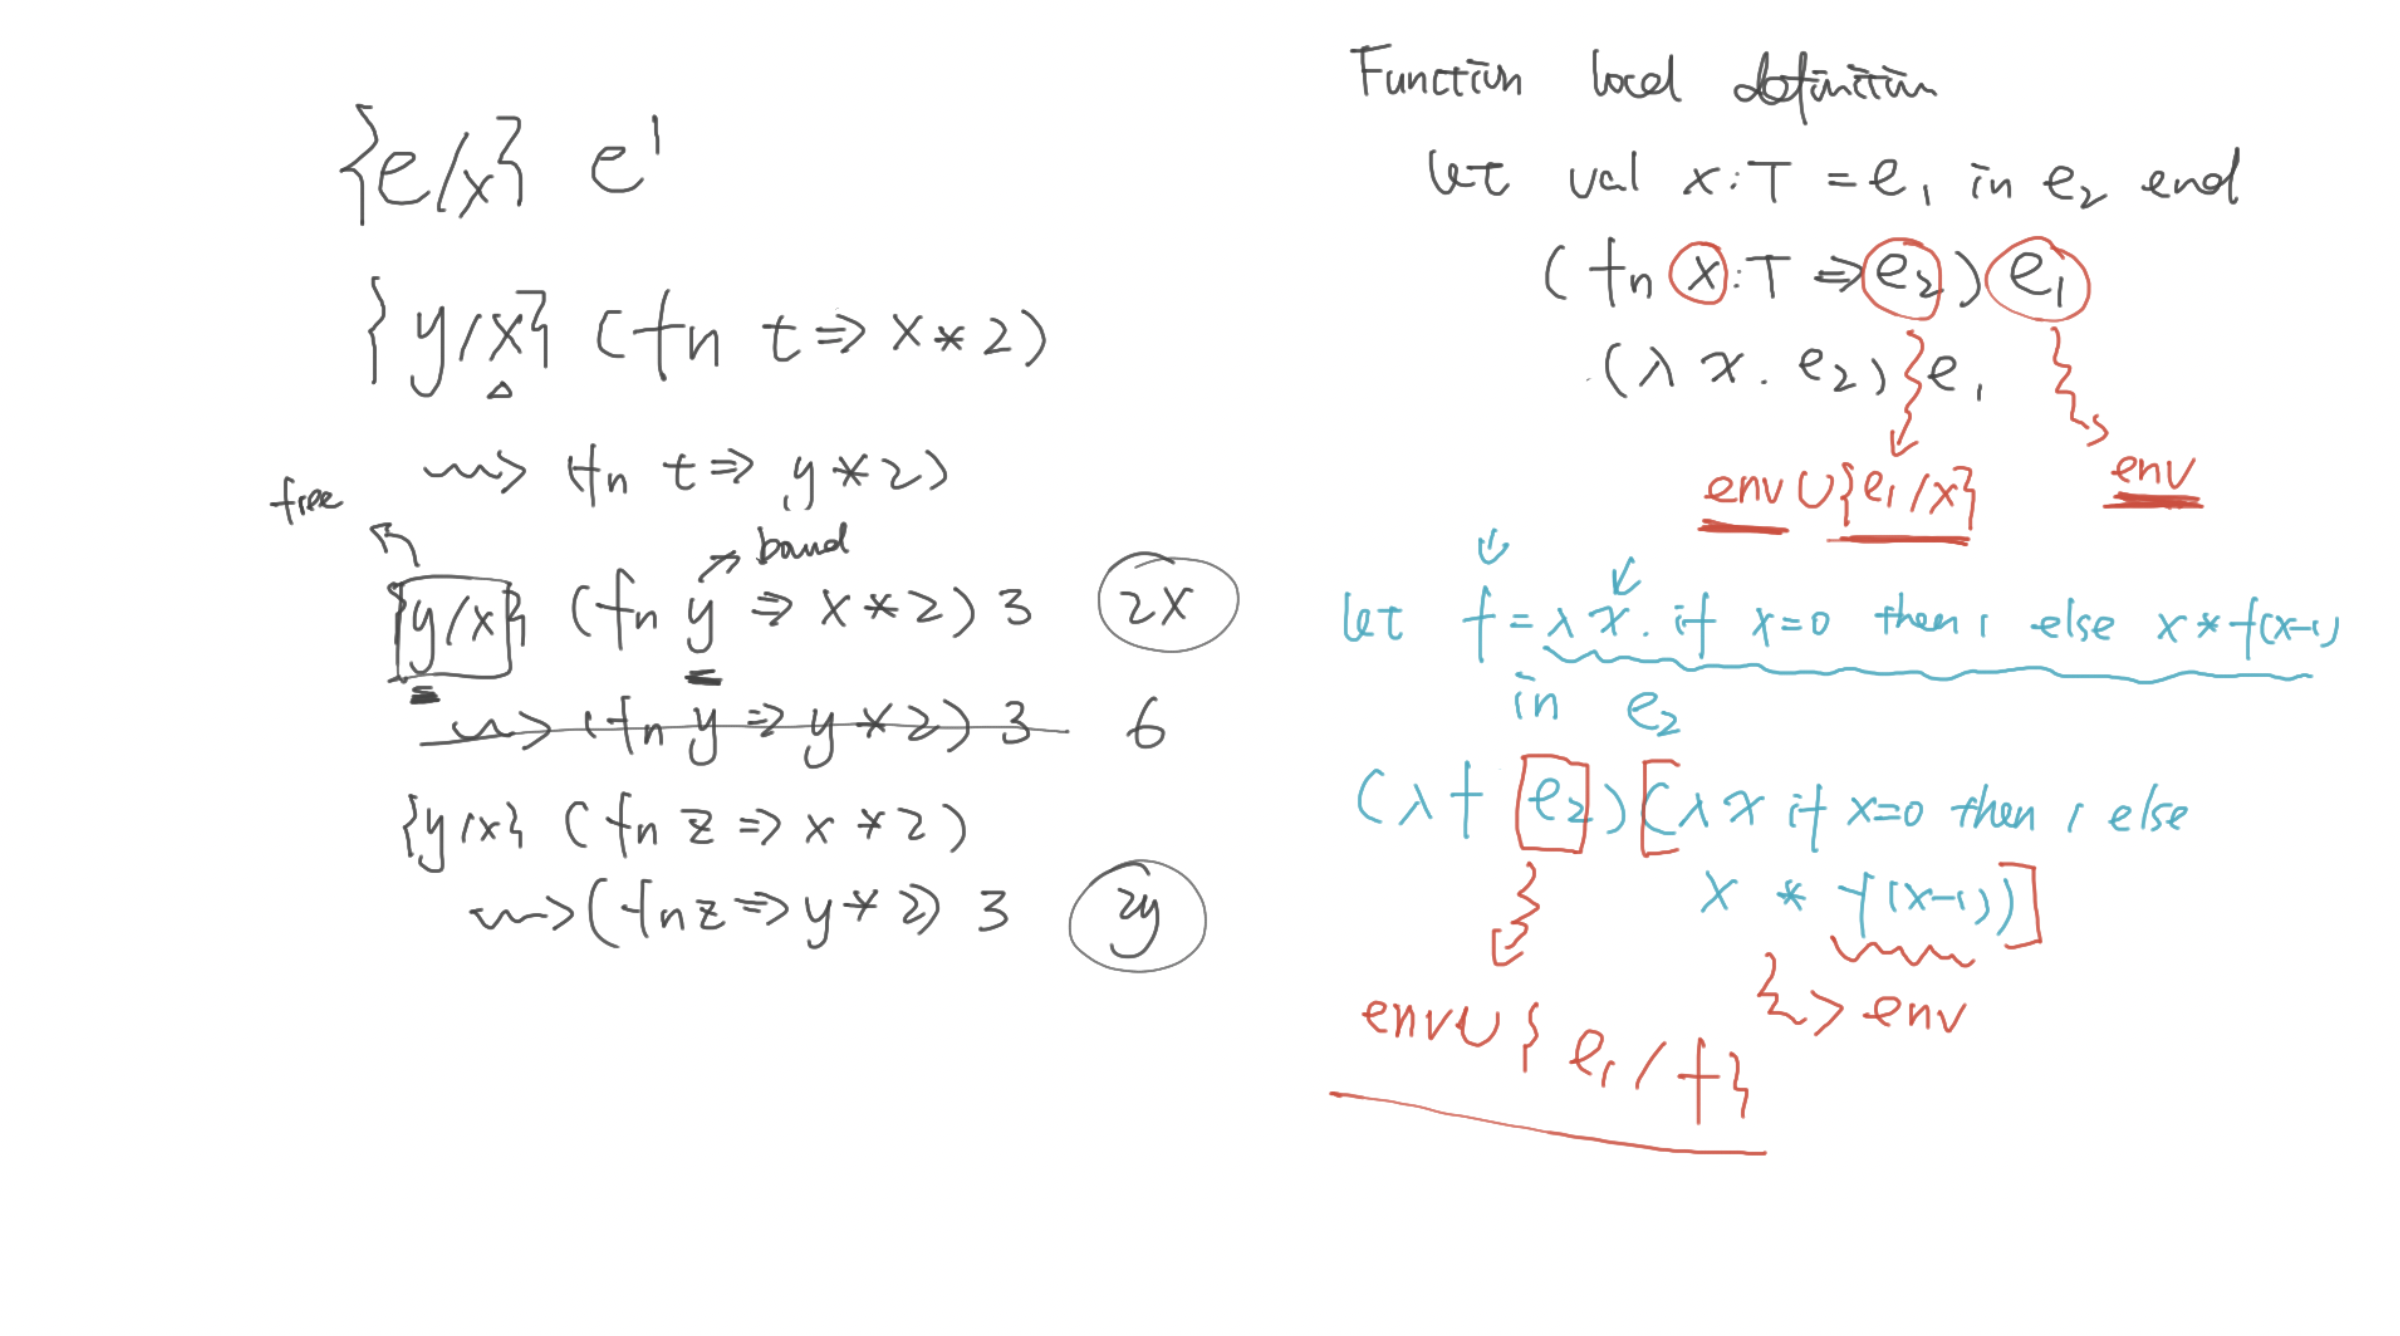 {e/x} e'
{y/x} (fn t => x * 2)
~~> (fn t => y * 2)
free
bound
{y/x} (fn y => x * 2) 3 2x
~~> (fn y => y * 2) 3 6
{y/x} (fn z => x * 2)
~~> (fn z => y * 2) 3 2y
Function local definition
let val x:T = e₁ in e₂ end
(fn x:T => e₂) e₁
(λ x. e₂) e₁
env ∪ {e₁/x} env
let f = λ x. if x=0 then 1 else x * f(x-1)
in e₂
(λ f e₂) (λ x if x=0 then 1 else
x * f(x-1))
env
env ∪ { e₁ / f }